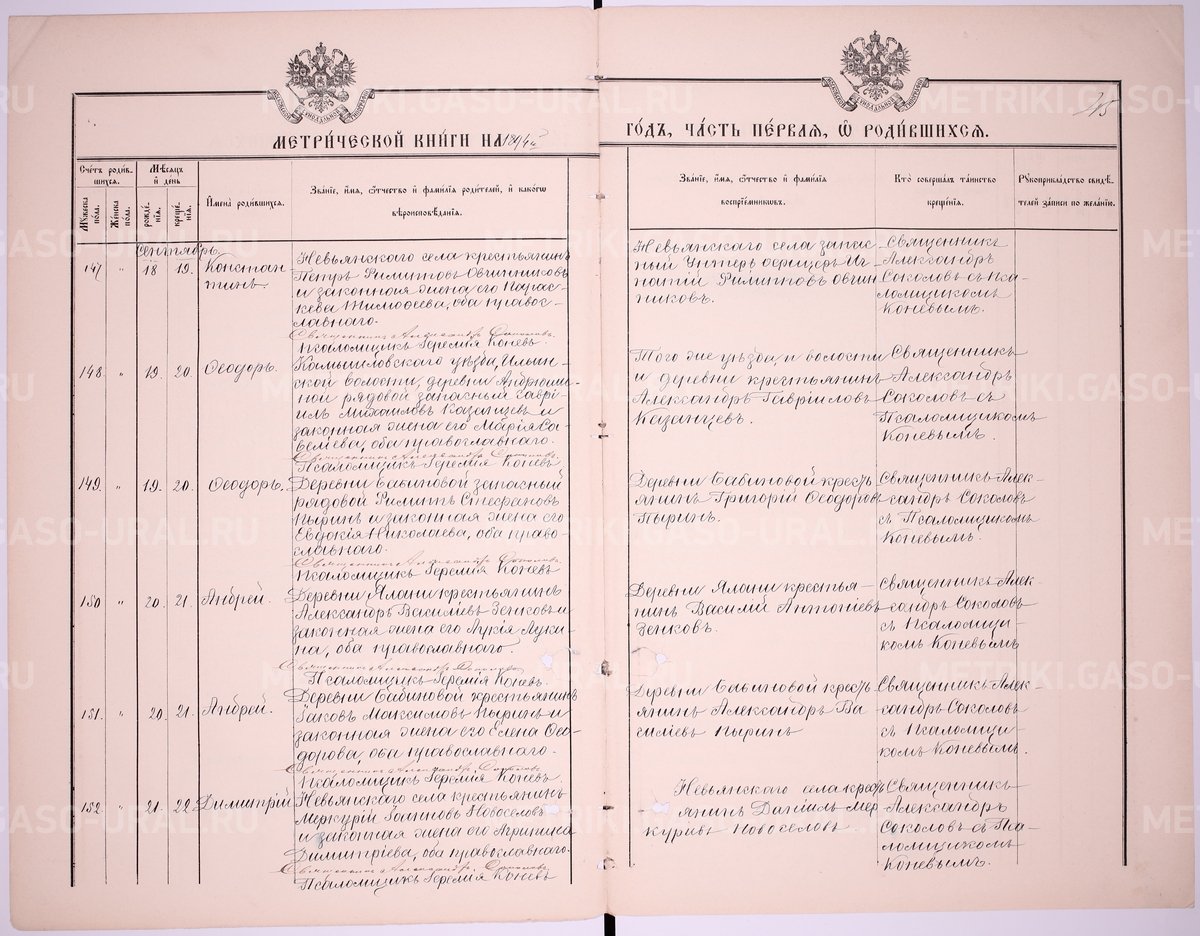 МЕТРИ́ЧЕСКОЙ КНИ́ГИ НА 1894й
ГО́ДЪ, ЧА́СТЬ ПЕ́РВАЯ, Ѽ РОДИ́ВШИХСЯ.
Сче́тъ роди́в-
шихся.
Му́жеска по́ла.
Же́нска по́ла.
Мѣ́сяцъ
и҆ де́нь
рожде́нїя.
креще́нїя.
И҆мена̀ роди́вшихся.
Зва́нїе, и҆́мя, ѻ҆́тчество и҆ фами́лїя роди́телей, и҆ како́гѡ
вѣроисповѣ́данїя.
Зва́нїе, и҆́мя, ѻ҆́тчество и҆ фами́лїя
воспрїе́мникѡвъ.
Кто̀ соверша́лъ та́инство
креще́нїя.
Рꙋкоприкла́дство свидѣ́-
телей за́писи по жела́нїю.
Сентябрь
147 " 18 19. Констан
тинъ.
Невьянскаго села крестьянинъ
Петръ Филипповъ Овчинниковъ
и законная жена его Парас-
кева Тимоѳеева, оба правос-
лавнаго.
Священникъ Александръ Соколовъ.
Псаломщикъ Іеремія Коневъ.
Невьянскаго села запас
ный Унтеръ офицеръ Иг-
натій Филипповъ Овчин
никовъ.
Священникъ
Александръ
Соколовъ съ Пса-
ломщикомъ
Коневымъ.
148 " 19. 20. Ѳеодоръ.
Камышловскаго уѣзда, Ильин-
ской волости, деревни
рядовой запасный Гаврі-
илъ Михаиловъ Казанцевъ и
законная жена его Марія Са-
веліева, оба православнаго.
Священникъ Александръ Соколовъ
Псаломщикъ Іеремія Коневъ
Того же уѣзда, и волости
и деревни крестьянинъ
Александръ Гавріиловъ
Казанцевъ.
Священникъ
Александръ
Соколовъ съ
Псаломщикомъ
Коневымъ.
149. " 19. 20. Ѳеодоръ.
Деревни Бабиновой запасный
рядовой Филиппъ Стефановъ
Пыринъ и законная жена его
Евдокія Николаева, оба право-
славнаго.
Священникъ Александръ Соколовъ
Псаломщикъ Іеремія Коневъ
Деревни Бабиновой кресть
янинъ Григорій Ѳеодоровъ
Пыринъ.
Священникъ Алек-
сандръ Соколовъ
съ Псаломщикомъ
Коневымъ.
150 " 20. 21. Андрей.
Деревни Ялани крестьянинъ
Александръ Василіевъ Зенковъ и
законная жена его Лукія Луки-
на, оба православнаго.
Священникъ Александръ Соколовъ
Псаломщикъ Іеремія Коневъ.
Деревни Ялани крестья-
нинъ Василій Антоніевъ
Зенковъ.
Священникъ Алек-
сандръ Соколовъ
съ Псаломщи-
комъ Коневымъ
151. " 20. 21. Андрей.
Деревни Бабиновой крестьянинъ
Іаковъ Максимовъ Пыринъ и
законная жена его Елена Ѳео-
дорова, оба православнаго.
Священникъ Александръ Соколовъ
Псаломщикъ Іеремія Коневъ.
Деревни Бабиновой кресть
янинъ Александръ Ва
силіевъ Пыринъ
Священникъ Алек-
сандръ Соколовъ
съ Псаломщи-
комъ Коневымъ.
152 " 21. 22. Димитрій
Невьянскаго села крестьянинъ
Меркурій Іоанновъ Новоселовъ
и законная жена его Агрипина
Димитріева, оба православнаго.
Священникъ Александръ Соколовъ
Псаломщикъ Іеремія Коневъ
Невьянскаго села кресть
янинъ Даніилъ Мер
куріевъ Новоселовъ
Священникъ
Александръ
Соколовъ съ Пса-
ломщикомъ
Коневымъ.
METRIKI.GASO-URAL.RU